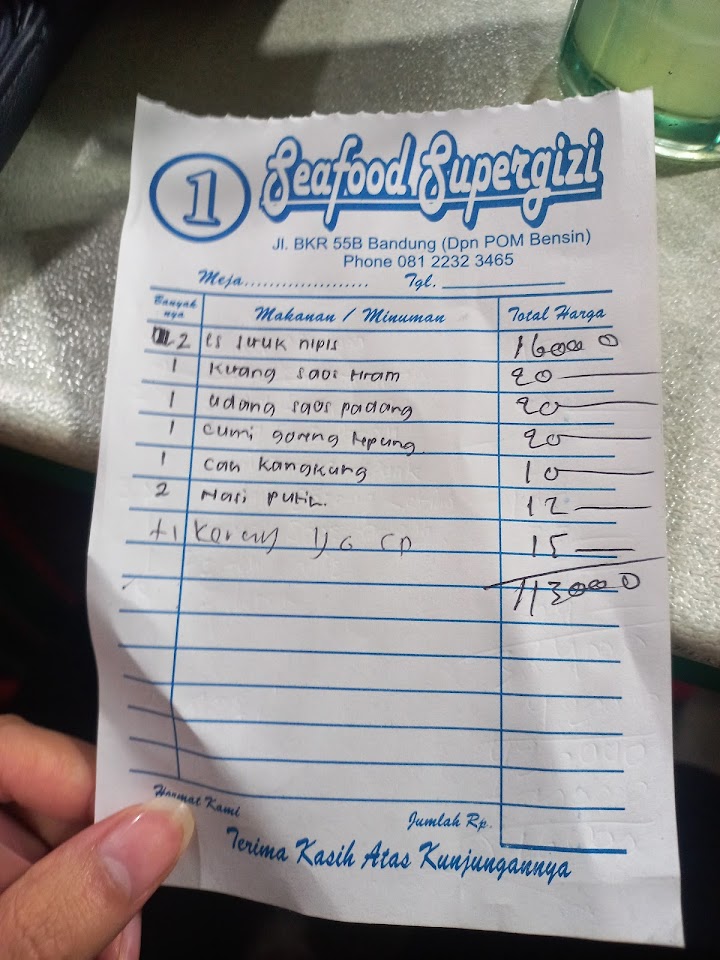 1 Seafood Supergizi
Jl. BKR 55B Bandung (Dpn POM Bensin)
Phone 081 2232 3465
Meja..................... Tgl. ______________
Banyak nya Makanan / Minuman Total Harga
2 es jeruk nipis 16000
1 Kerang saos tiram 20
1 udang saos padang 20
1 cumi goreng tepung 20
1 cah kangkung 10
2 Nasi putih 12
+1 Kerang 15
113000
Hormat Kami
Jumlah Rp.
Terima Kasih Atas Kunjungannya